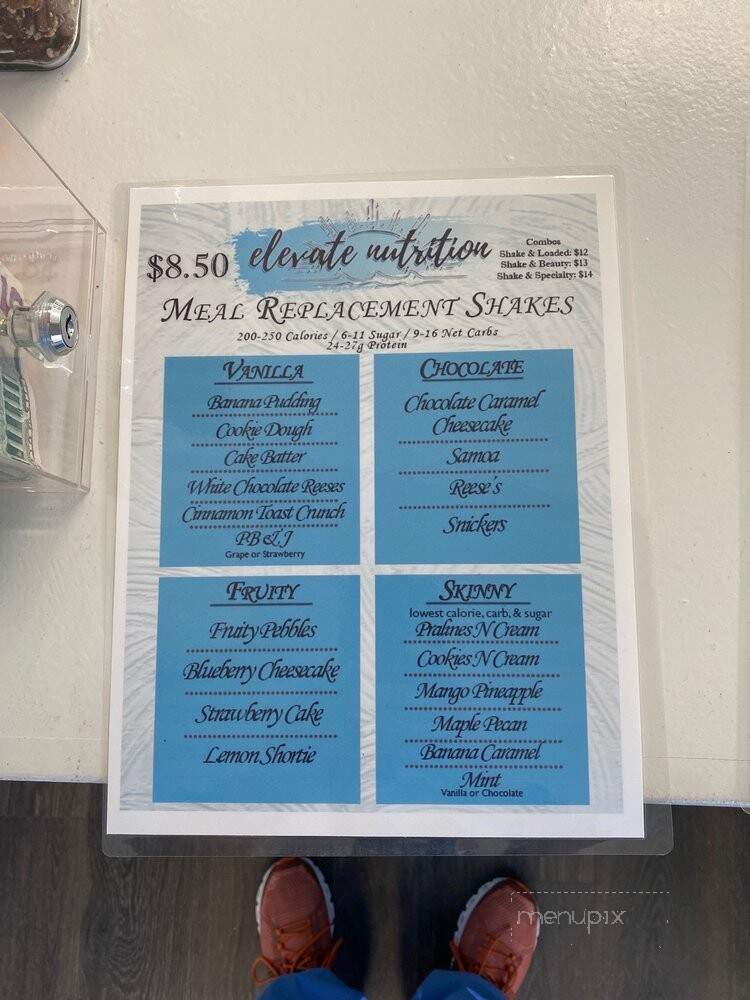 $8.50
elevate nutrition
Combos
Shake & Loaded: $12
Shake & Beauty: $13
Shake & Specialty: $14
MEAL REPLACEMENT SHAKES
200-250 Calories / 6-11 Sugar / 9-16 Net Carbs
24-27g Protein
VANILLA
Banana Pudding
Cookie Dough
Cake Batter
White Chocolate Reeses
Cinnamon Toast Crunch
PB & J
Grape or Strawberry
CHOCOLATE
Chocolate Caramel
Cheesecake
Samoa
Reese's
Snickers
FRUITY
Fruity Pebbles
Blueberry Cheesecake
Strawberry Cake
Lemon Shortie
SKINNY
lowest calorie, carb, & sugar
Pralines N Cream
Cookies N Cream
Mango Pineapple
Maple Pecan
Banana Caramel
Mint
Vanilla or Chocolate
menupix